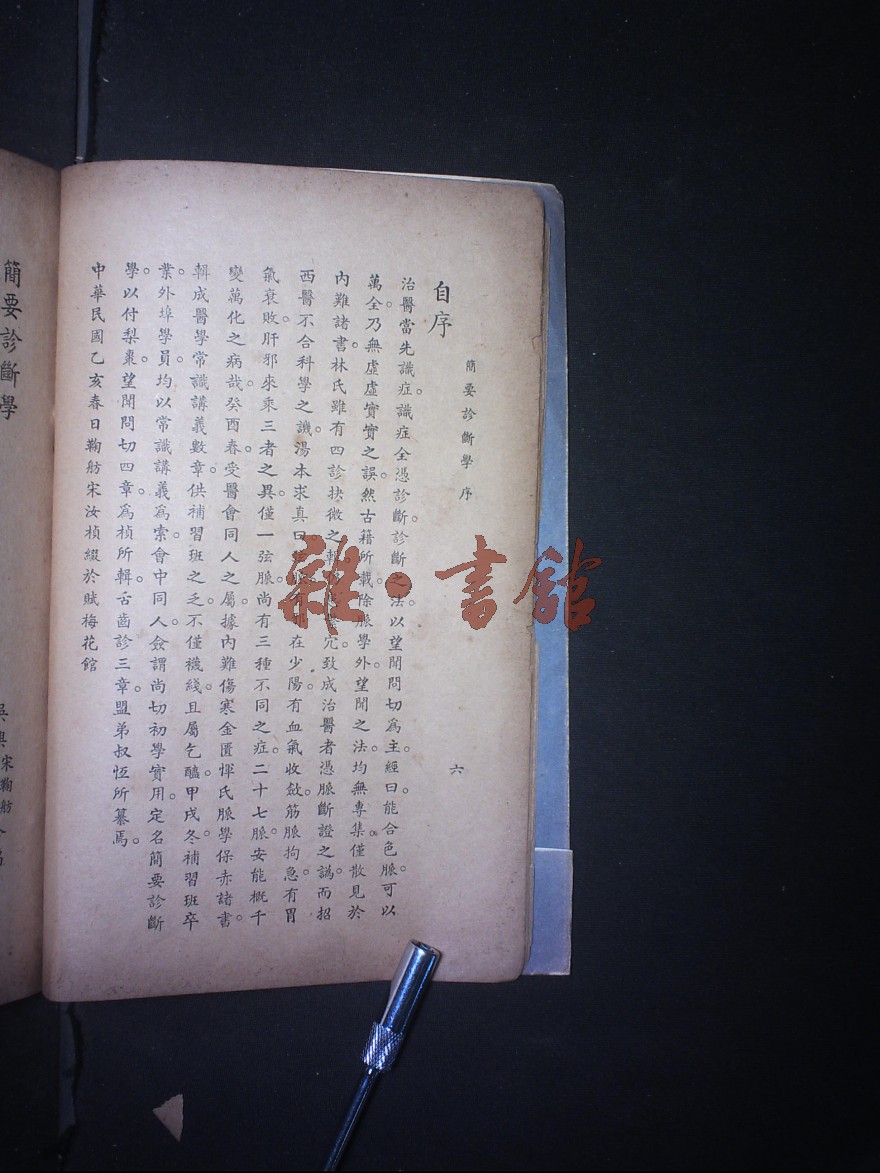 簡要診斷學 序
六
自序
治醫當先識症。識症全憑診斷。診斷之法。以望聞問切爲主。經曰。能合色脈。可以
萬全。乃無虛虛實實之誤。然古籍所載。除脈學外。望聞之法。均無專集。僅散見於
內難諸書。林氏雖有四診抉微之輯。致成治醫者憑脈斷證之譌。而招
西醫不合科學之譏。湯本求真曰。在少陽。有血氣收斂。筋脈拘急。有胃
氣衰敗。肝邪來乘。三者之異。僅一弦脈。尚有三種不同之症。二十七脈。安能概千
變萬化之病哉。癸酉春。受醫會同人之屬。據內難傷寒金匱惲氏脈學保赤諸書。
輯成醫學常識講義數章。供補習班之乏。不僅襪綫。且屬乞醯。甲戌冬。補習班卒
業。外埠學員。均以常識講義爲索。會中同人。僉謂尚切初學實用。定名簡要診斷
學。以付梨棗。望聞問切四章。爲楨所輯。舌齒診三章。盟弟叔恆所纂焉。
中華民國乙亥春日鞠舫宋汝楨綴於賦梅花館
簡要診斷學
宋鞠舫
雜·書館